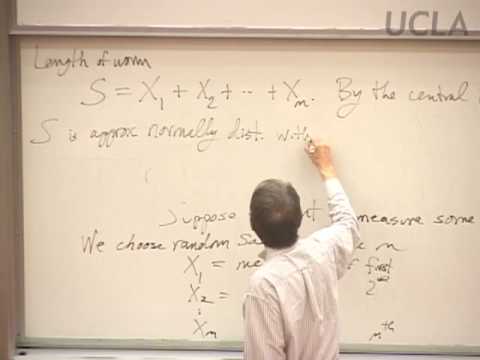 UCLA
Length of worm
S = X₁ + X₂ + ... + Xₘ. By the central
S is approx normally dist. with
Suppose measure some
We choose random n
X₁ = first
X₂ = 2ⁿᵈ
:
Xₘ mᵗʰ